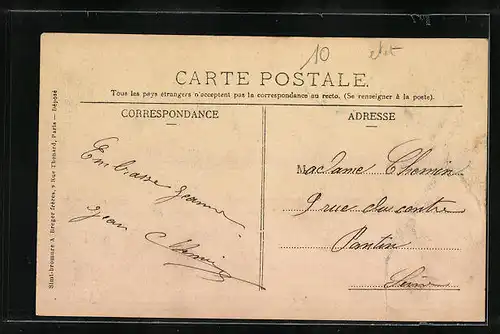 10
CARTE POSTALE.
Tous les pays étrangers n'acceptent pas la correspondance au recto. (Se renseigner à la poste).
CORRESPONDANCE
ADRESSE
Embrasse Jeanne
Jean Chemin
Madame Chemin
9 rue du centre
Pantin
Seine
Simi-bromure A. Breger frères, 9 Rue Thénard, Paris — Déposé